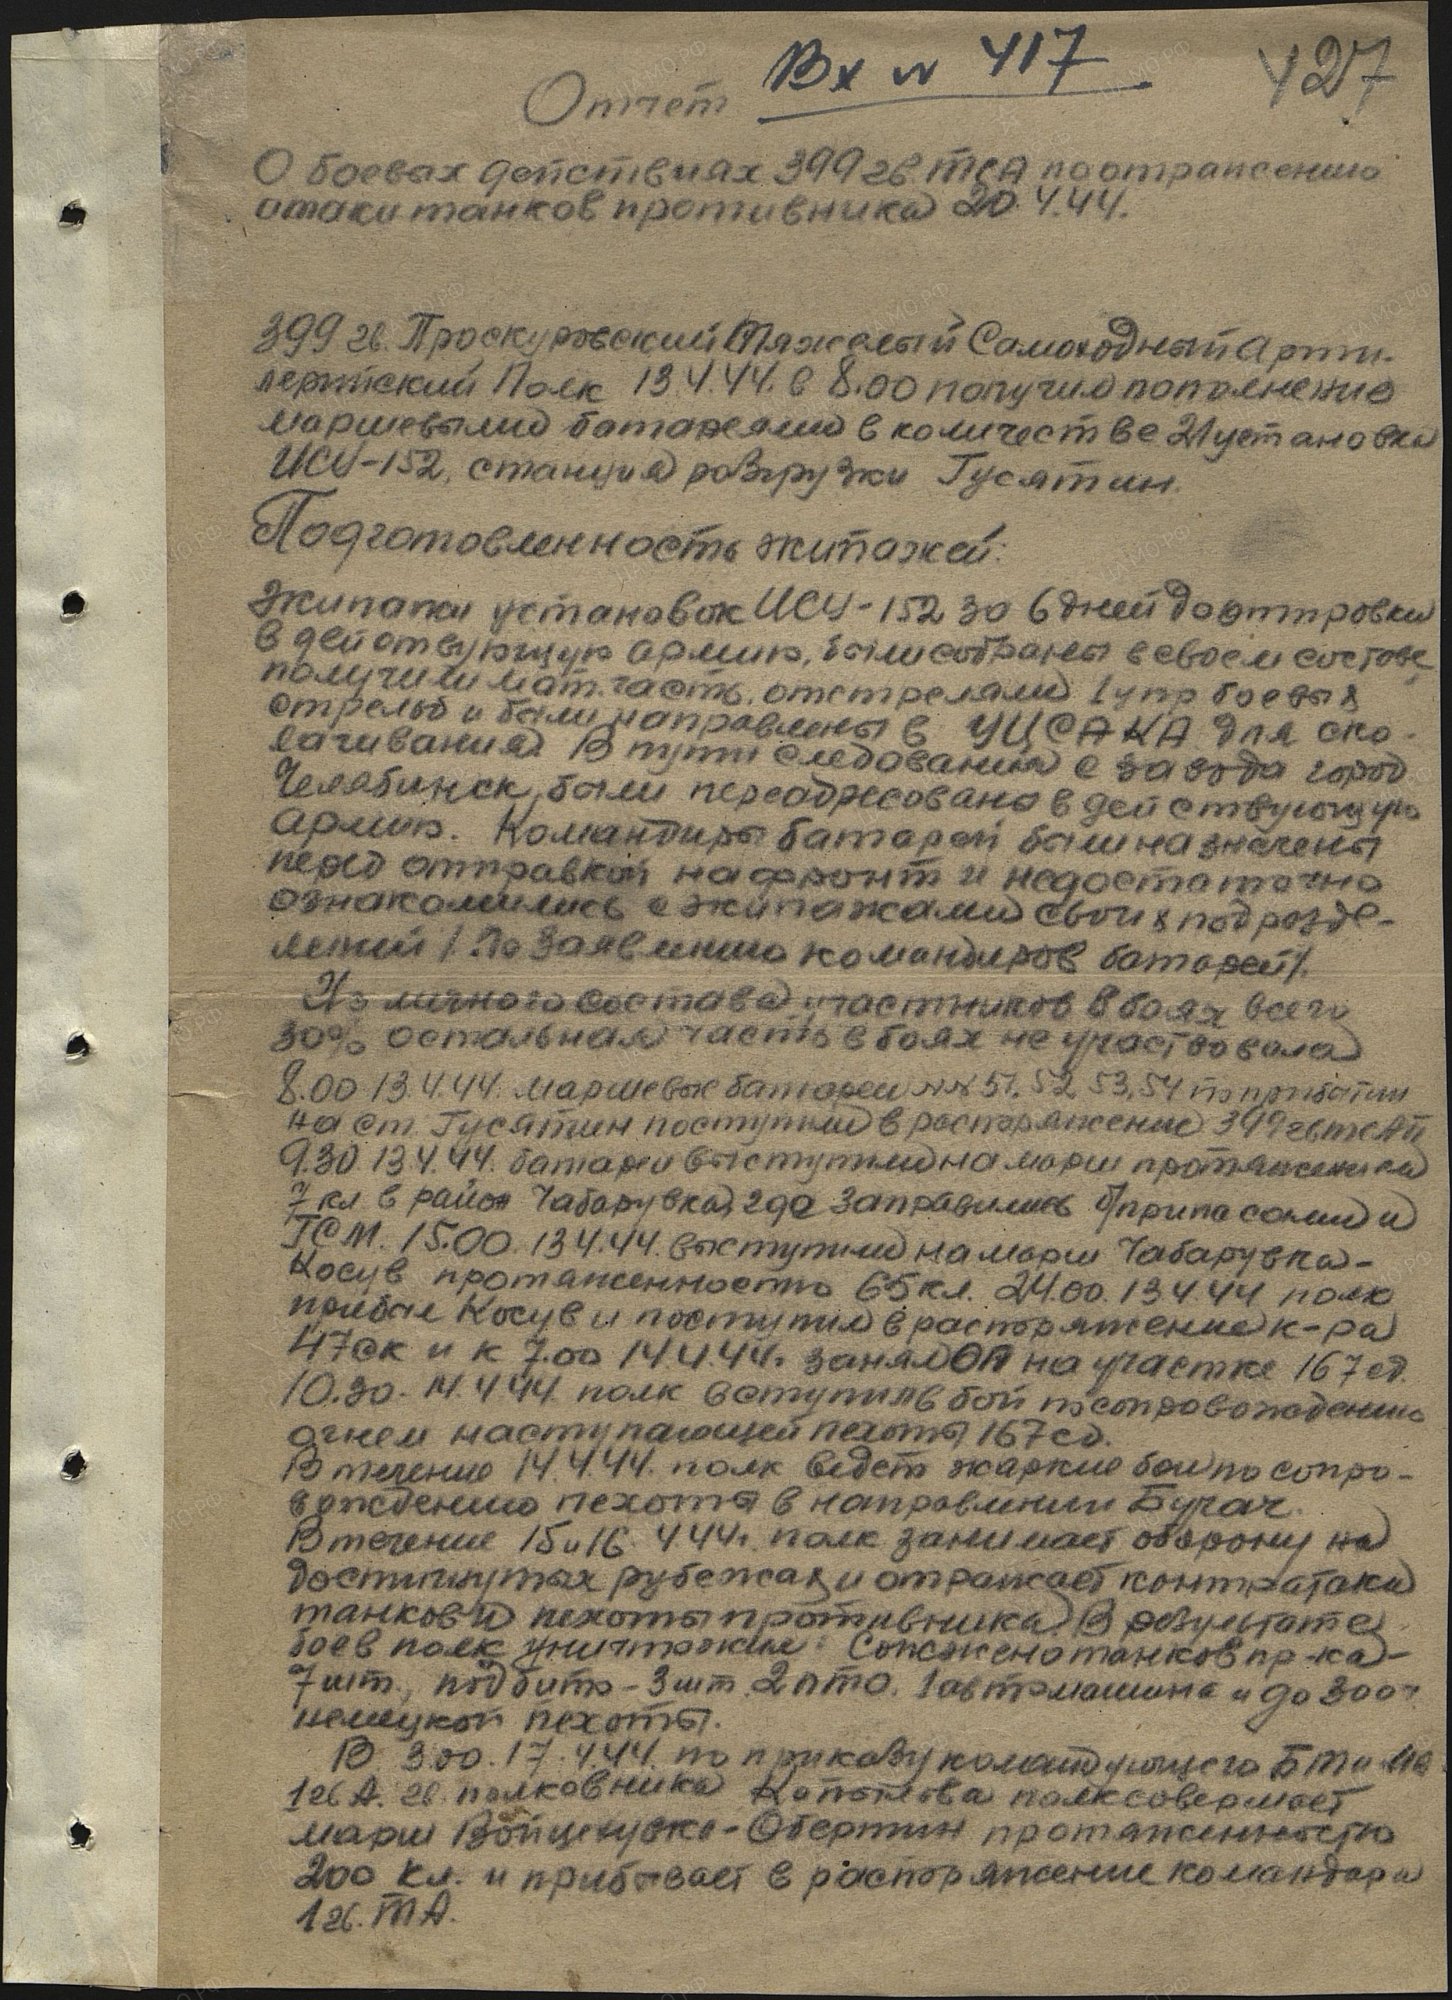 Вх № 417
427
Отчет
О боевых действиях 399 гв. ТСАП по отражению
атаки танков противника 20.4.44.
399 гв. Проскуровский Тяжелый Самоходный Арти-
лерийский Полк 13.4.44. в 8.00 получил пополнение
маршевыми батареями в количестве 21 установка
ИСУ-152, станция разгрузки Гусятин.
Подготовленность экипажей:
Экипажи установок ИСУ-152 за 6 дней до отправки
в действующую армию, были собраны в своем составе,
получили мат.часть, отстреляли 1 упр боевых
стрельб и были направлены в УЦСАКА для ско-
лачивания. В пути следования с завода город
Челябинск, были переадресованы в действующую
армию. Командиры батарей были назначены
перед отправкой на фронт и недостаточно
ознакомились с экипажами своих подразде-
лений /По заявлению командиров батарей/.
Из личного состава участников в боях всего
30% остальная часть в боях не участвовала
8.00 13.4.44. маршевые батареи №№ 51, 52, 53, 54 по прибытии
на ст. Гусятин поступили в распоряжение 399 гвтсап
9.30 13.4.44. батареи выступили на марш протяжением
7 кл в район Чабарувка, где заправились б/припасами и
ГСМ. 15.00. 13.4.44. выступили на марш Чабарувка-
Косув протяженностью 65 кл. 24.00. 13.4.44 полк
прибыл Косув и поступил в распоряжение к-ра
47 ск и к 7.00 14.4.44. занял ОП на участке 167 сд.
10.30. 14.4.44. полк вступил в бой по сопровождению
огнем наступающей пехоты 167 сд.
В течение 14.4.44. полк ведет жаркие бои по сопро-
вождению пехоты в направлении Бучач.
В течение 15 и 16.4.44г. полк занимает оборону на
достигнутых рубежах и отражает контратаки
танков и пехоты противника. В результате
боев полк уничтожил: Сожжено танков пр-ка-
7 шт., подбито - 3 шт. 2 пто. 1 автомашина и до 300ч
немецкой пехоты.
В 3.00. 17.4.44. по приказу командующего БТ и МВ
1 гв А. гв. полковника полк совершает
марш Войцехувка - Обертин протяженностью
200 кл. и прибывает в распоряжение командарм
1 гв. ТА.